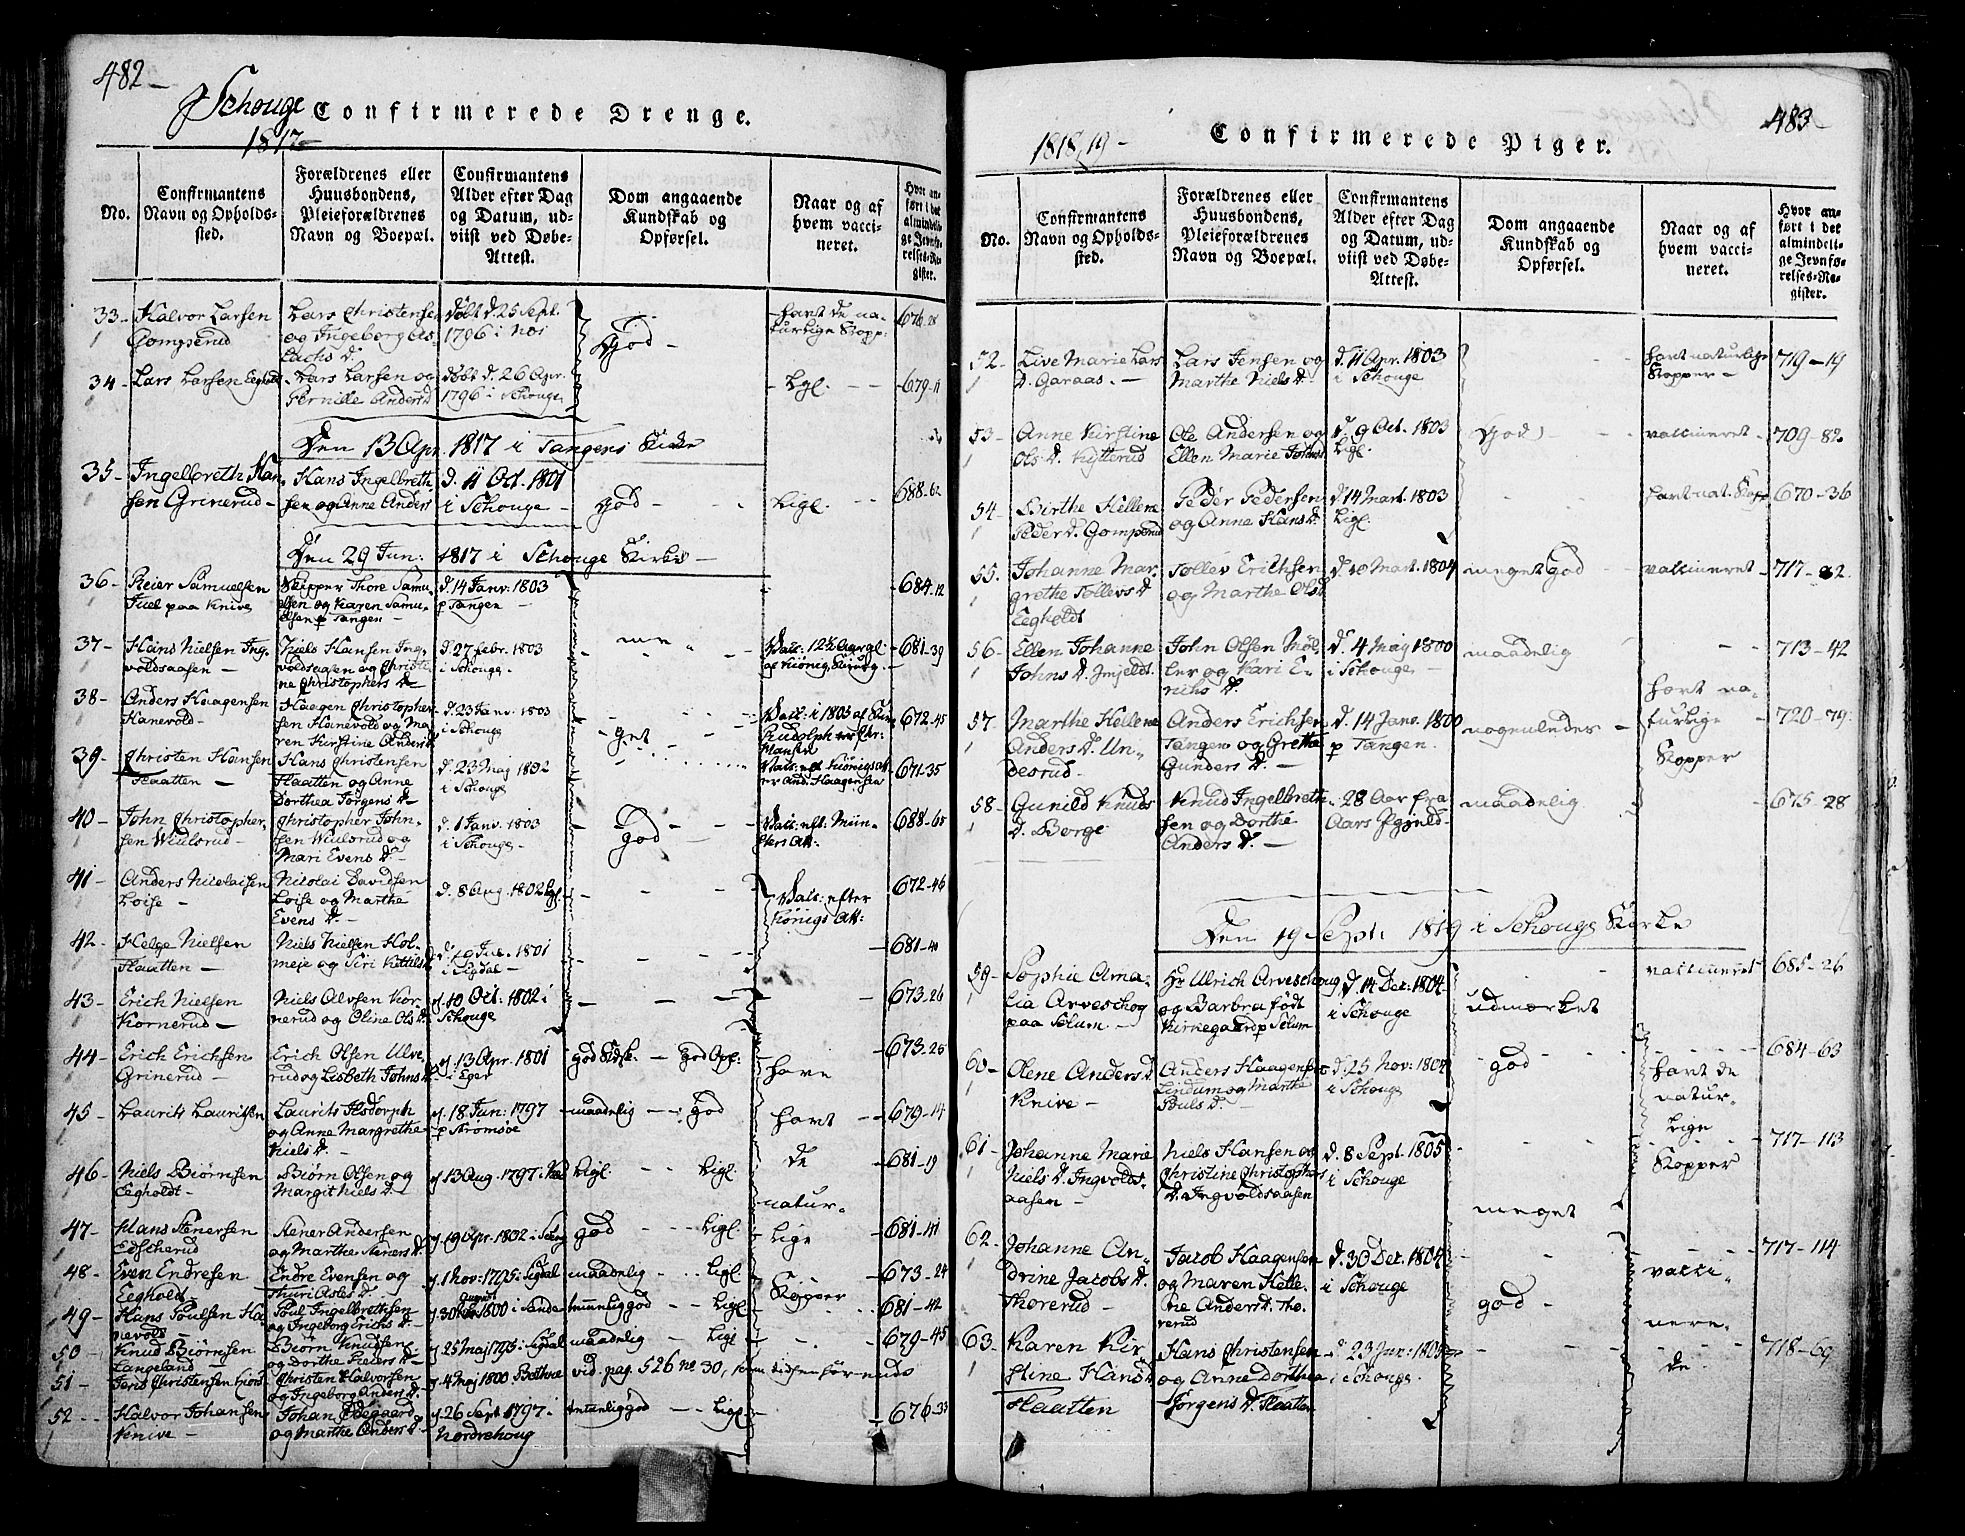 482
Schouge
1817
Confirmerede Drenge.
No.
Confirmantens
Navn og Opholds-
sted.
Forældrenes eller
Huusbondens,
Pleieforældrenes
Navn og Boepæl.
Confirmantens
Alder efter Dag
og Datum, ud-
viist ved Døbe-
Attest.
Dom angaaende
Kundskab og
Opførsel.
Naar og af
hvem vacci-
neret.
Hvor an-
ført i det
almindeli-
ge Jevnfø-
relses-Re-
gister.
33 Halvor Larsen
Gompserud
Lars Christensen
og Ingeborg As
lachs D.
døbt d. 25 Sept.
1796 i
God
havt de na-
turlige Kopp:
676-28
34 Lars Larsen Eegholdt
Lars Larsen og
Pernille Anders D
døbt d. 26 Apr.
1796 i Schouge
Ligl.
679-11
Den 13 Apr. 1817 i Tangens Kirke
35 Ingelbreth Han-
sen Grinerud
Hans Ingelbreth-
sen og Anne Anders
d. 11 Oct. 1801
i Schouge
God
Ligl.
688-62
Den 29 Jun: 1817 i Schouge Kirke
36 Reier Samuelsen
Juel paa Knive
Skipper Thore Samu-
elsen og Karen Samu-
elsen p Tangen
d. 14 Janv. 1803
p Tangen
684-12
37 Hans Nielsen Ing-
voldsaasen
Niels Hansen Ing-
voldsaasen og Christi-
ne Christophers D
d. 27 febr. 1803
i Schouge
681-39
38 Anders Haagensen
Hanevold
Haagen Christopher-
sen Hanevold og Ma-
ren Kirstine Anders D
d. 23 Janv. 1803
i Schouge
get
Vac: i 1803 af
Rudolph
672-45
39 Christen Hansen
Flaatten
Hans Christensen
Flaatten og Anne
Dorthea Jørgens D
d. 23 Maj 1802
i Schouge
671-35
40 John Christopher-
sen Wiulsrud
Christopher John-
sen Wiulsrud og
Mari Evens D.
d. 1 Janv. 1803
i Schouge
God
688-65
41 Anders Nicolaisen
Loise
Nicolai Davidsen
Loise og Marthe
Evens D.
d. 8 Aug. 1802 Ligl.
Vac: efter
Königs Att:
672-46
42 Helge Nielsen
Flaatten
Niels Nielsen Hol-
meje og Siri Kittils D
d. 10 Jul. 1801
i Sigdal
681-40
43 Erich Nielsen
Kornerud
Niels Olvsen Kor-
nerud og Oline Ols D.
d. 10 Oct. 1802 i
Schouge
673-26
44 Erich Erichsen
Grinerud
Erich Olsen Ulve-
rud og Lisbeth Johns D.
d. 13 Apr. 1801
i Eger
673-25
45 Laurits Lauritsen
Laurits Flodorph
og Anne Margrethe
Niels D.
d. 18 Jun: 1797
p Strømsøe
maadelig
god
havt
679-14
46 Niels Biørnsen
Eegholdt
Biørn Olsen og
Margit Niels D.
d. 13 Aug. 1797
Ligl.
Ligl.
de
681-19
natur-
47 Hans Stenersen
Stener Andersen
og Marthe Steners D.
d. 19 Apr. 1802 i
god
Ligl.
lige
681-41
48 Even Endresen
Eegholdt
Endre Evensen og
Thuri Asles D.
d. 1 Nov: 1795 i Sigdal
maadelig
Ligl.
Kopper
673-24
49 Hans Poulsen Ha-
nevold
Poul Ingelbrethsen
og Ingeborg Erichs D.
August
1800 i Sande
Ligl.
681-42
50 Knud Biørnsen
Langeland
Biørn Knudsen
og Dorthe Reiers D
d. 25 Maj 1795 i Sigdal
maadelig
Ligl.
679-45
51 Jens Christensen
Christen Halvorsen
og Ingeborg Anders D.
d. 4 Maj 1800
vid. pag. 526 No 30,
52 Halvor Johansen
Knive
Johan Ødegaard
og Marthe Anders D
d. 26 Sept 1797 i
Nordrehoug
Ligl.
676-33
483
1818/19
Confirmerede Piger.
No.
Confirmantens
Navn og Opholds-
sted.
Forældrenes eller
Huusbondens,
Pleieforældrenes
Navn og Boepæl.
Confirmantens
Alder efter Dag
og Datum, ud-
viist ved Døbe-
Attest.
Dom angaaende
Kundskab og
Opførsel.
Naar og af
hvem vacci-
neret.
Hvor an-
ført i det
almindeli-
ge Jevnfø-
relses-Re-
gister.
52 Live Marie Lars
D. Garaas.
Lars Jensen og
Marthe Niels D.
d. 11 Apr. 1803
i Schouge
havt naturlige
Kopper
719-19
53 Anne Kirstine
Ols D. Kytterud
Ole Andersen og
Ellen Marie Johns
d. 9 Oct. 1803
Ligl.
God
vaccineret
709-82
54 Birthe Hellene
Peder D. Gompserud
Peder Pedersen
og Anne Hans D.
d. 14 Mart. 1803
Ligl.
havt nat. Kopp
670-36
55 Johanne Mar-
grethe Tollevs D
Eegholdt
Tollev Erichsen
og Marthe Ols D
d. 10 Mart. 1804
meget God
vaccineret
717-82
56 Ellen Johanne
Johns D. Jmfeldt
John Olsen Møl-
ler og Kari E-
richs D.
d. 4 Maj 1800
i Schouge
maadelig
713-42
57 Marthe Hellene
Anders D. Un-
desrud
Anders Erichsen
Tangen og Grethe
Gunders D.
d. 14 Janv. 1800
p Tangen.
nogenledes
havt na-
turlige
Kopper
720-79
58 Gunild Knuds
D. Borge
Knud Ingelbreth-
sen og Dorthe
Anders D.
28 Aar fra
Aars
maadelig
675-28
Den 19 Sept: 1819 i Schouge Kirke
59 Sophie Ama-
lia Arveschog
paa Selum
Hr Ulrich Arveschoug
og Barbra født
Kirkegaard p Selum
d. 14 Dec: 1804
i Schouge
udmærket
vaccineret
685-26
60 Olene Anders D
Knive
Anders Haagensen
Lindum og Marthe
Pouls D.
d. 25 Nov: 1804
i Schouge
god
havt de
natur-
lige
Kopper
684-63
61 Johanne Marie
Niels D. Ingvolds-
aasen
Niels Hansen og
Christine Christophers
D. Ingvoldsaasen
d. 8 Sept. 1805
i Schouge
meget
717-113
62 Johanne An-
drine Jacobs D.
Thorerud
Jacob Haagensen
og Maren Helle-
ne Anders D. Tho-
rerud
d. 30 Dec. 1804
i Schouge
god
vacci-
nere-
de
717-114
63 Karen Kir-
stine Hans D
Flaatten
Hans Christensen
og Anne Dorthea
Jørgens D. Flaatten
d. 23 Jun: 1805
i Schouge
718-69